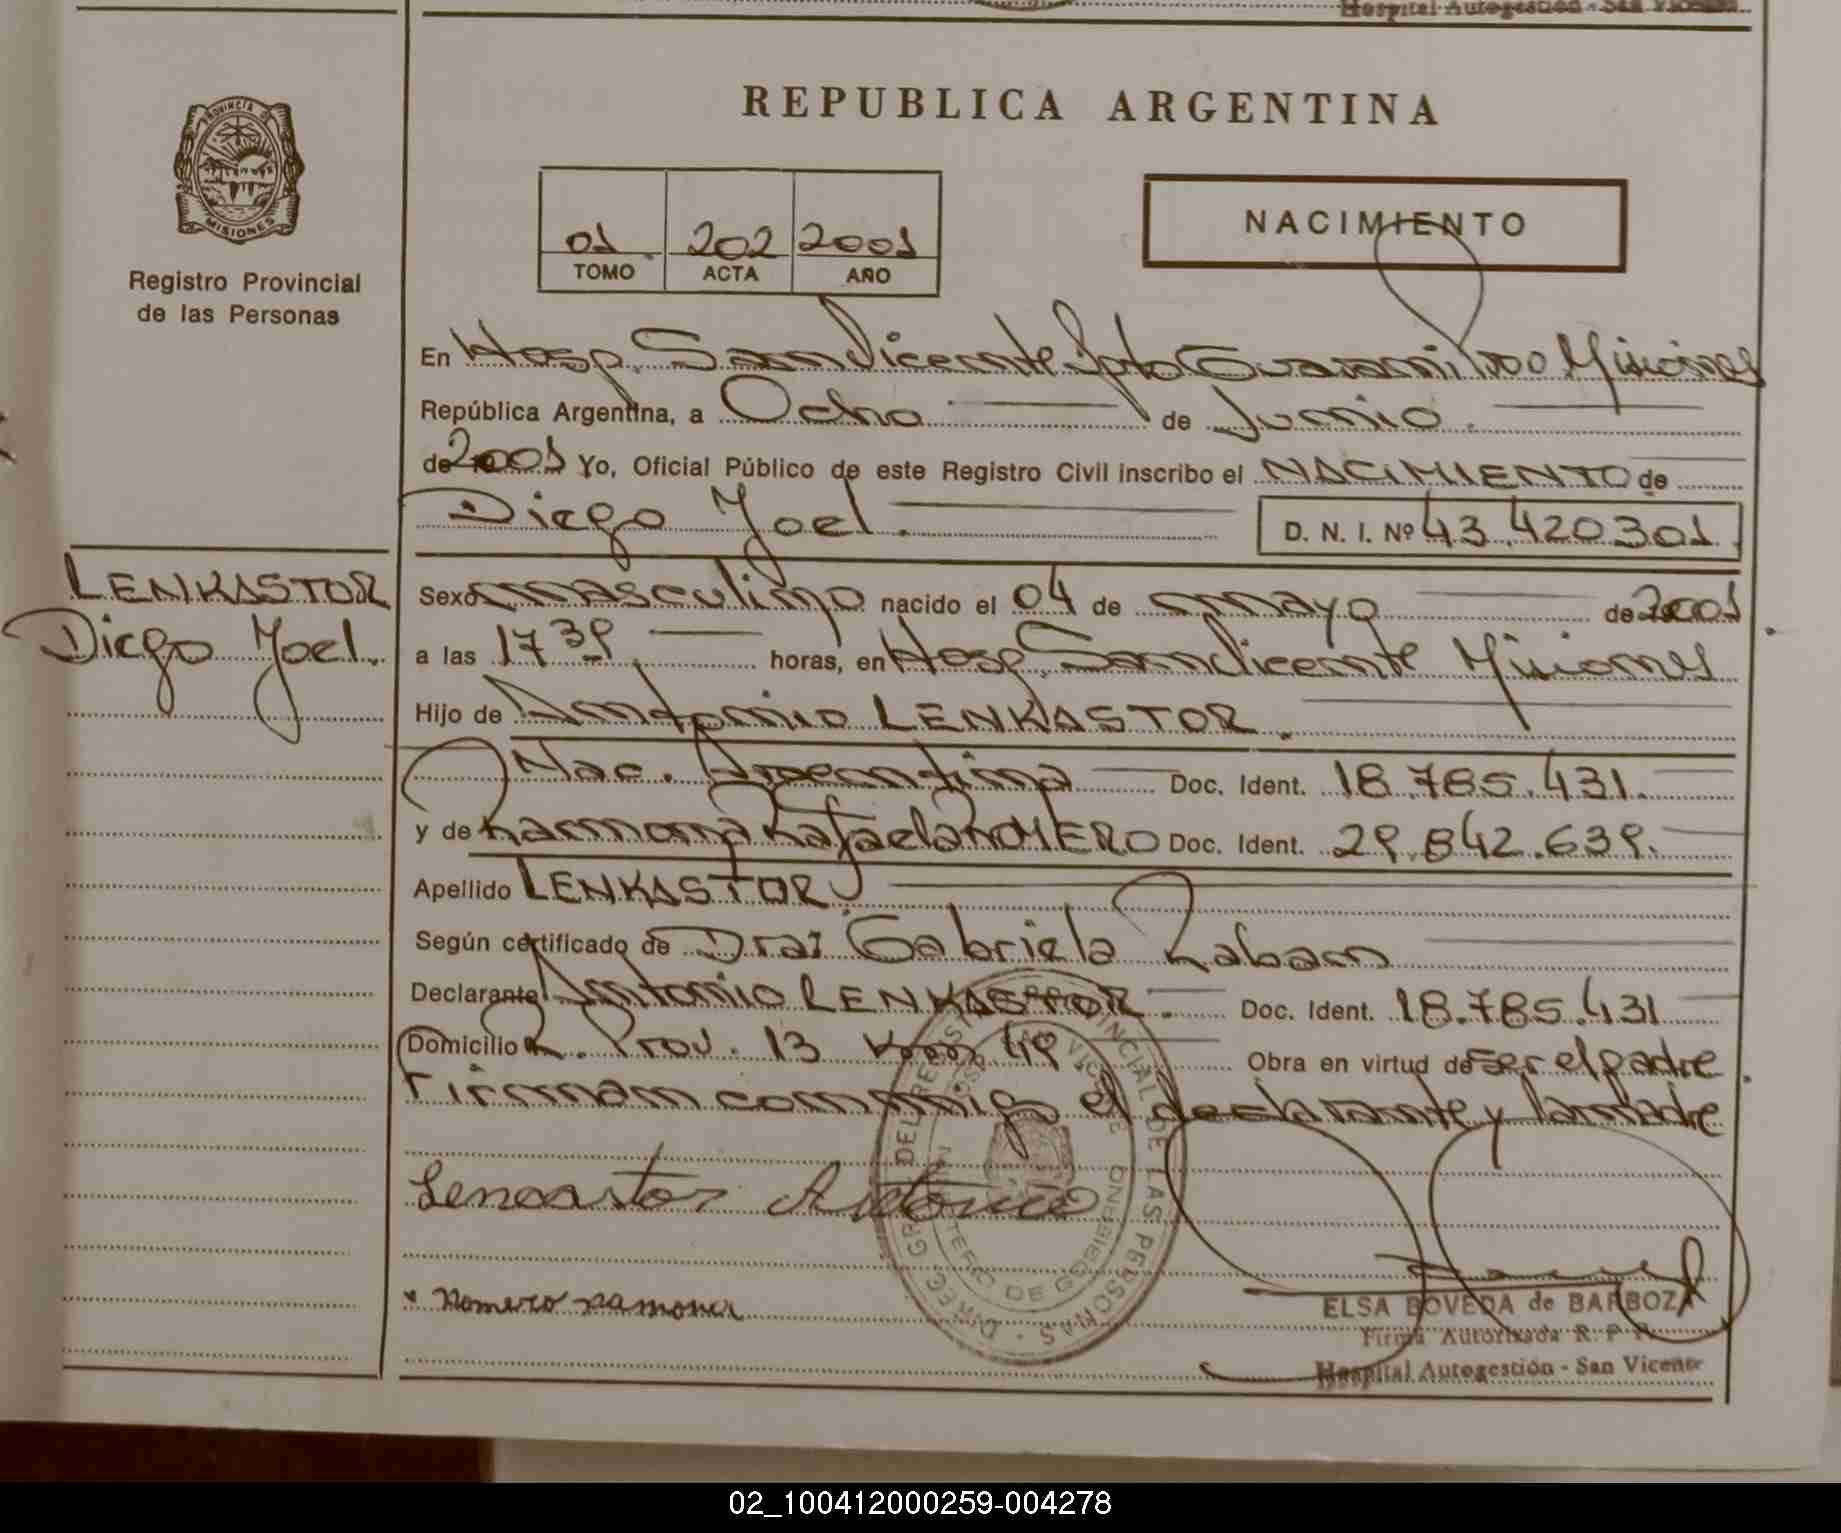 Hospital Autogestión - San Vicente
REPUBLICA ARGENTINA
PROVINCIA DE
MISIONES
Registro Provincial
de las Personas
01 202 2001
TOMO ACTA AÑO
NACIMIENTO
En Hosp. San Vicente Dpto Guarani Pvo Misiones
República Argentina, a Ocho de Junio.
de 2001 Yo, Oficial Público de este Registro Civil inscribo el NACIMIENTO de
Diego Yoel. D. N. I. Nº 43.420301
LENKASTOR
Diego Yoel.
Sexo masculino nacido el 04 de mayo de 2001
a las 17 39 horas, en Hosp. San Vicente Misiones
Hijo de Antonio LENKASTOR.
Nac. Argentina Doc. Ident. 18.785.431.
y de Ramona Rafaela ROMERO Doc. Ident. 29.842.639.
Apellido LENKASTOR.
Según certificado de Dra: Gabriela Laban
Declarante Antonio LENKASTOR. Doc. Ident. 18.785.431
Domicilio R. Prov. 13 Km 49 Obra en virtud de ser el padre.
Firman conmigo el declarante y la madre
Lencastor Antonio
Romero ramona
DIREC. GRAL. DEL REGISTRO PROVINCIAL DE LAS PERSONAS
MINISTERIO DE GOBIERNO
ELSA BOVEDA de BARBOZA
Firma Autorizada R. P. P.
Hospital Autogestión - San Vicente
02_100412000259-004278